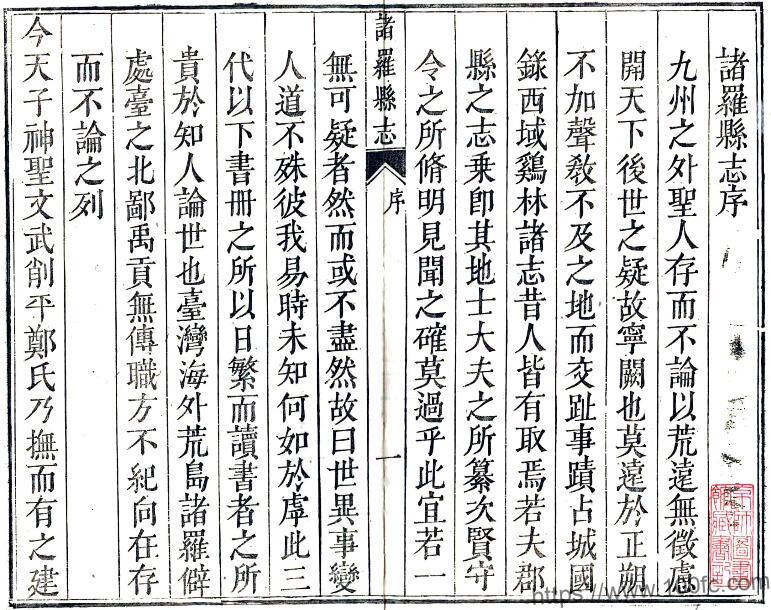 諸羅縣志序
九州之外聖人存而不論以荒遠無徵慮
開天下後世之疑故寧闕也莫遠於正朔
不加聲敎不及之地而交趾事蹟占城國
錄西域鷄林諸志昔人皆有取焉若夫郡
縣之志乘卽其地士大夫之所纂次賢守
令之所脩明見聞之確莫過乎此宜若一
諸羅縣志
序
一
無可疑者然而或不盡然故曰世異事變
人道不殊彼我易時未知何如於虖此三
代以下書冊之所以日繁而讀書者之所
貴於知人論世也臺灣海外荒島諸羅僻
處臺之北鄙禹貢無傳職方不紀向在存
而不論之列
今天子神聖文武削平鄭氏乃撫而有之建